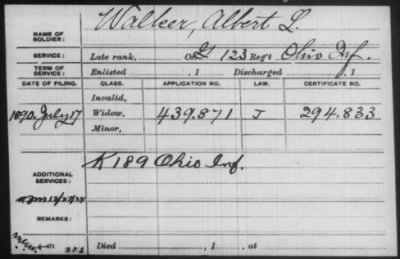 Walker, Albert L.
NAME OF SOLDIER:
SERVICE: Late rank, Co. G 123 Reg't Ohio Inf.
TERM OF SERVICE: Enlisted , 1 Discharged , 1
DATE OF FILING. CLASS. APPLICATION NO. LAW. CERTIFICATE NO.
Invalid,
1890. July 17 Widow, 439.871 J 294.833
Minor,
K 189 Ohio Inf.
ADDITIONAL SERVICES:
REMARKS:
Died , 1 , at